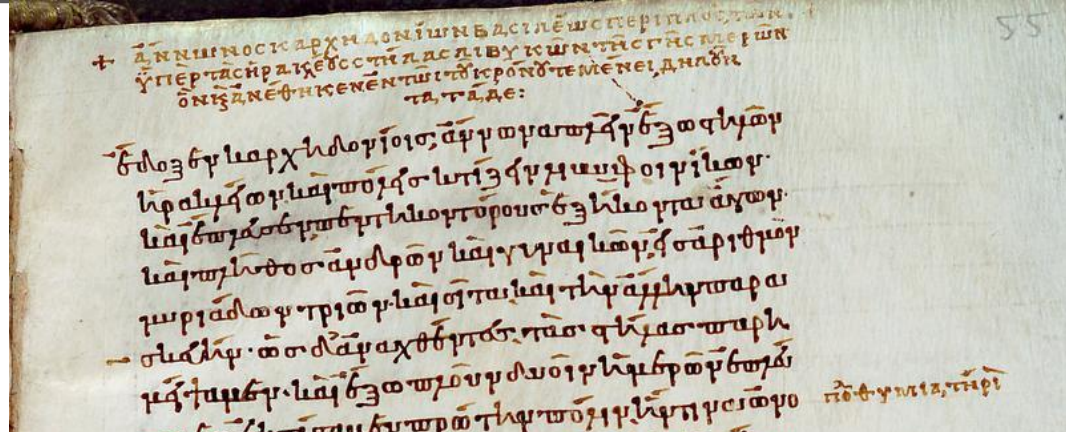 55
+ ἄννωνος καρχηδονίων βασιλέως περίπλους τῶν
ὑπὲρ τὰς ἡρακλέους στήλας λιβυκῶν τῆς γῆς μερῶν
ὃν καὶ ἀνέθηκεν ἐν τῶι τοῦ κρόνου τεμένει, δηλοῦν
τα τάδε:
ἔδοξεν καρχηδονίοις, ἄννωνα πλεῖν ἔξω στηλῶν
ἡρακλείων· καὶ πόλεις κτίζειν λιβυφοινίκων·
καὶ ἔπλευσεν πεντηκοντόρους ἑξήκοντα ἄγων·
καὶ πλῆθος ἀνδρῶν καὶ γυναικῶν, εἰς ἀριθμὸν
μυριάδων τριῶν· καὶ σῖτα καὶ τὴν ἄλλην παρα
σκευήν· ὡς δ' ἀναχθέντες τὰς στήλας παρη
μείψαμεν· καὶ ἔξω πλοῦν δυοῖν ἡμερῶν ἐπλεύ
πρώτην πόλιν ἥντινα ὠνο
πό θυμιατήρι